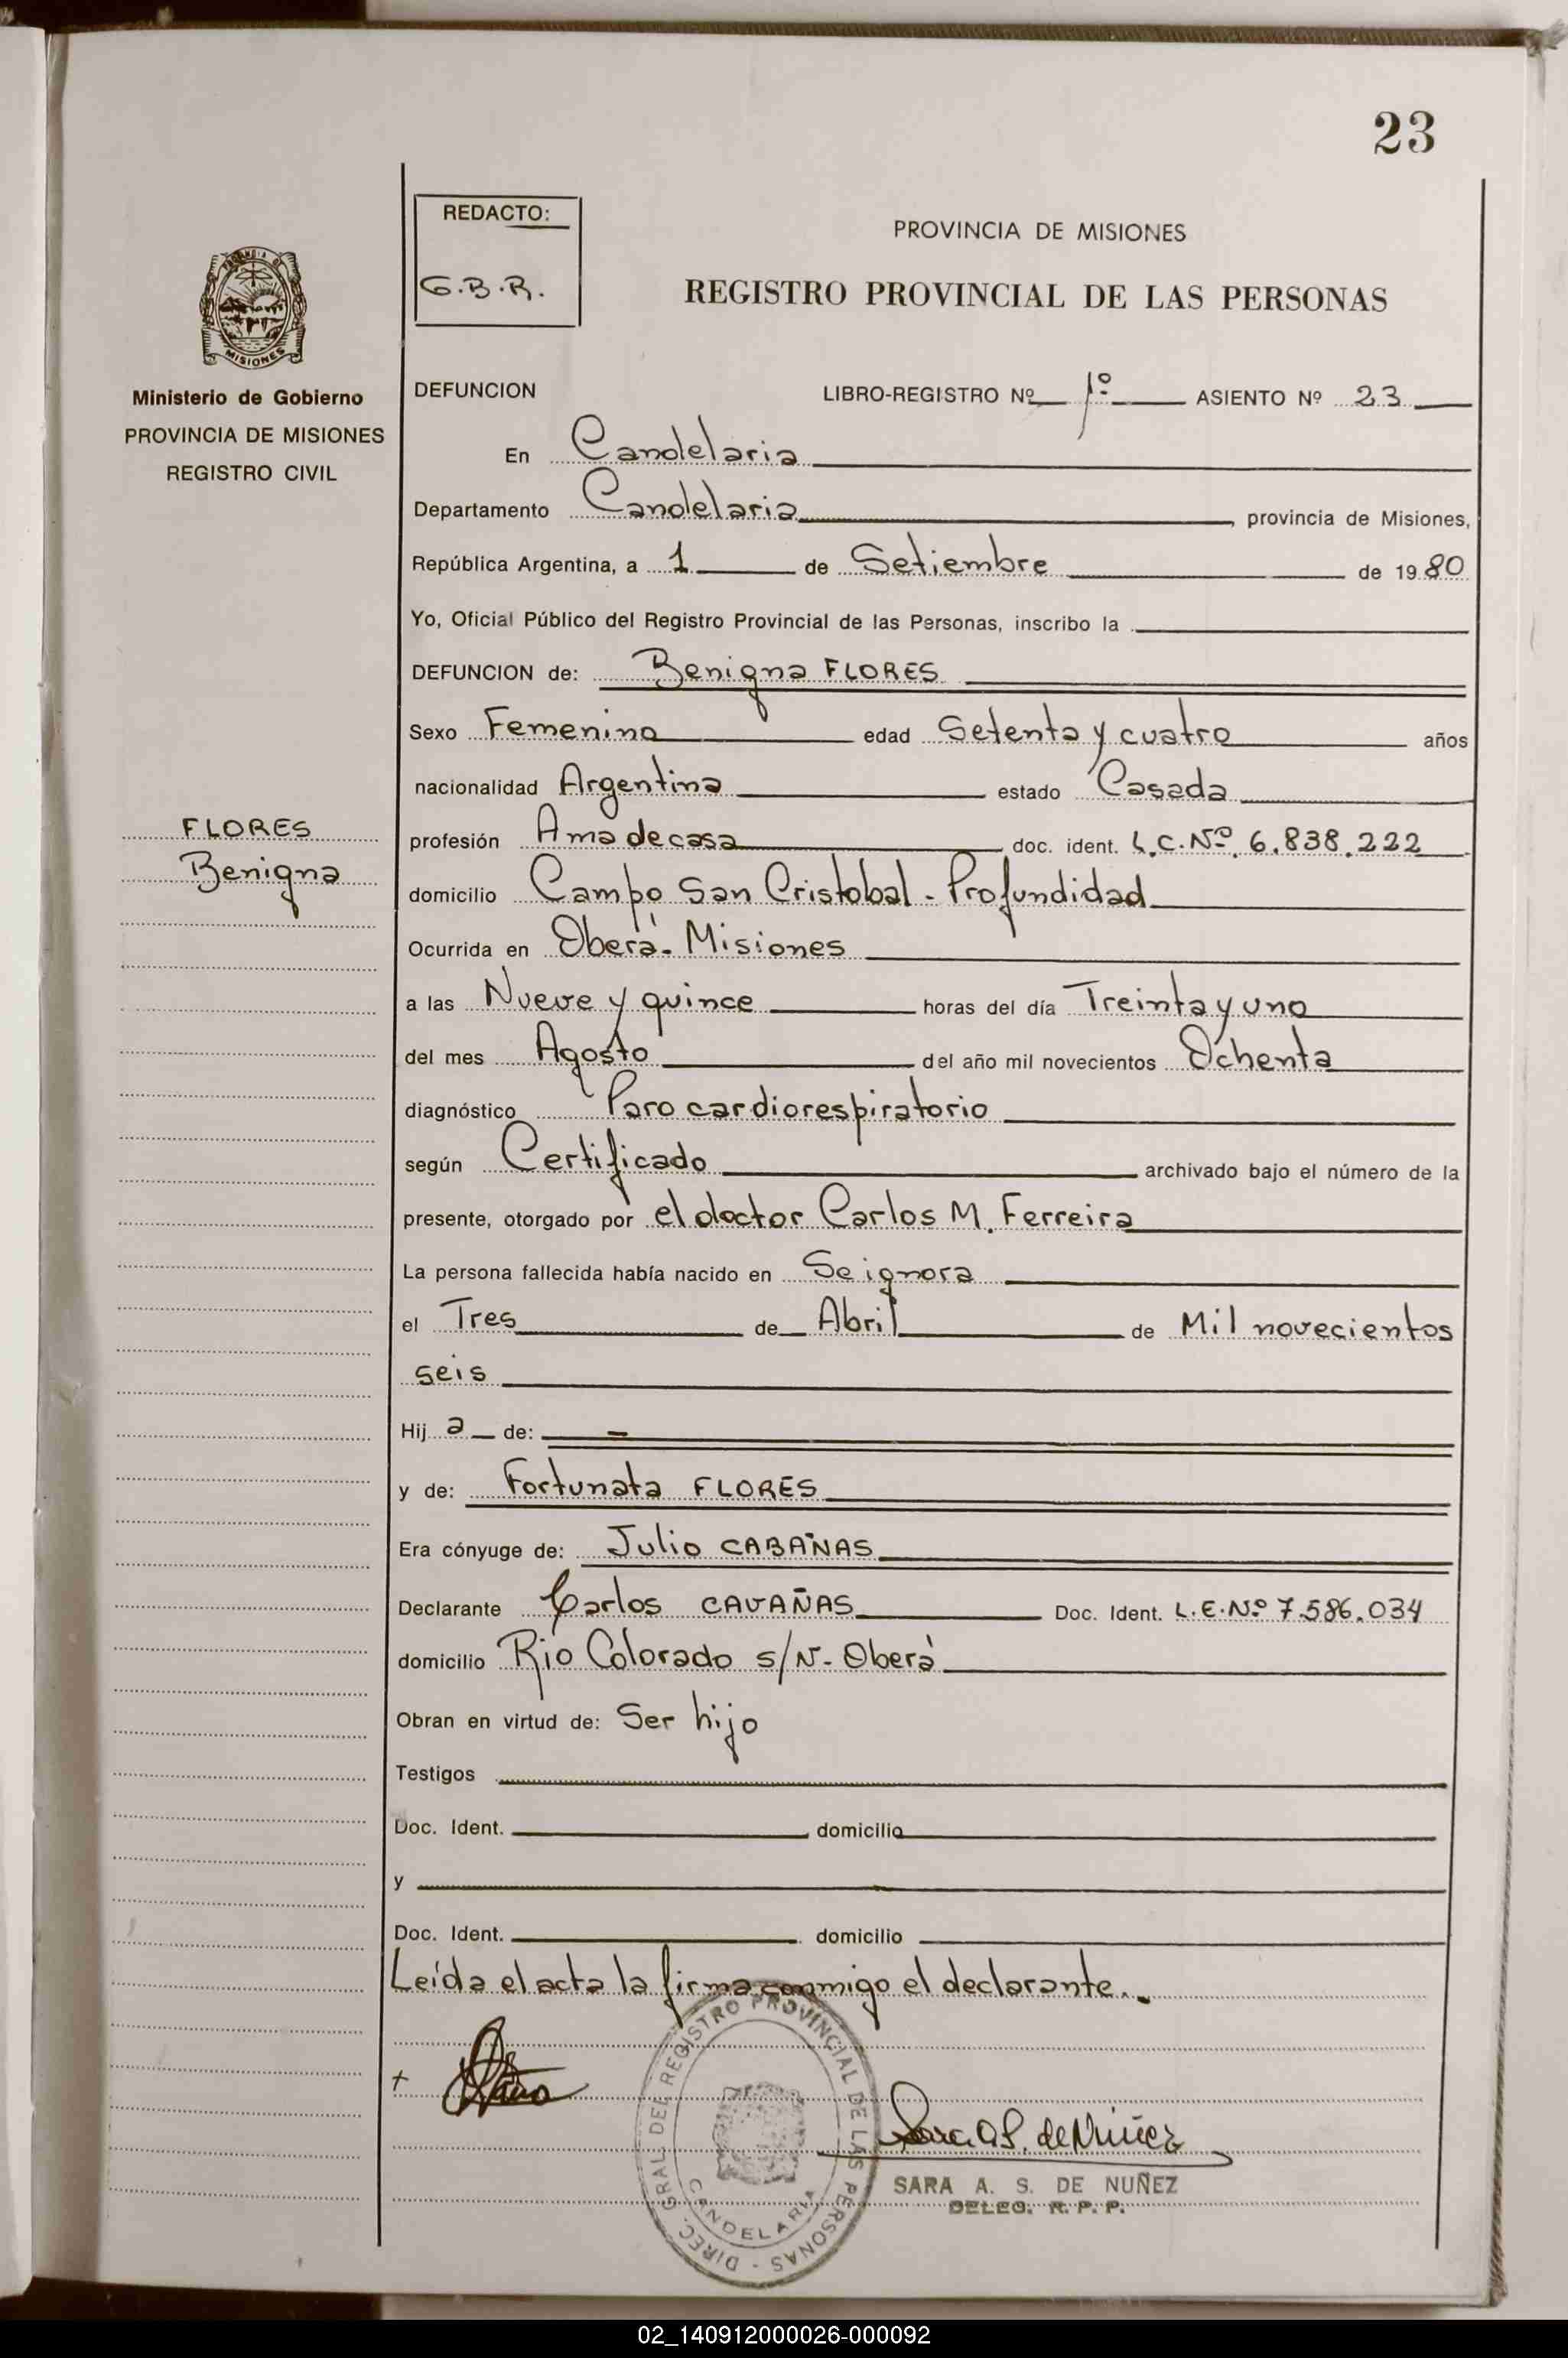 23
REDACTO:
G.B.R.
PROVINCIA DE MISIONES
REGISTRO PROVINCIAL DE LAS PERSONAS
PROVINCIA DE
MISIONES
Ministerio de Gobierno
PROVINCIA DE MISIONES
REGISTRO CIVIL
DEFUNCION LIBRO-REGISTRO Nº 1º ASIENTO Nº 23
En Candelaria
Departamento Candelaria, provincia de Misiones,
República Argentina, a 1 de Setiembre de 1980
Yo, Oficial Público del Registro Provincial de las Personas, inscribo la
DEFUNCION de: Benigna FLORES
Sexo Femenino edad Setenta y cuatro años
nacionalidad Argentina estado Casada
FLORES
Benigna
profesión Ama de casa doc. ident. L.C. Nº 6.838.222
domicilio Campo San Cristobal - Profundidad
Ocurrida en Oberá - Misiones
a las Nueve y quince horas del día Treinta y uno
del mes Agosto del año mil novecientos Ochenta
diagnóstico Paro cardiorespiratorio
según Certificado archivado bajo el número de la
presente, otorgado por el doctor Carlos M. Ferreira
La persona fallecida había nacido en Se ignora
el Tres de Abril de Mil novecientos
seis
Hij a de: -
y de: Fortunata FLORES
Era cónyuge de: Julio CABAÑAS
Declarante Carlos CAVAÑAS Doc. Ident. L.E. Nº 7.586.034
domicilio Rio Colorado s/N - Oberá
Obran en virtud de: Ser hijo
Testigos
Doc. Ident. domicilio
y
Doc. Ident. domicilio
Leída el acta la firma conmigo el declarante.
DIREC. GRAL. DEL REGISTRO PROVINCIAL DE LAS PERSONAS -
CANDELARIA
Sara A S. de Núñez
SARA A. S. DE NUÑEZ
DELEG. R. P. P.
02_140912000026-000092